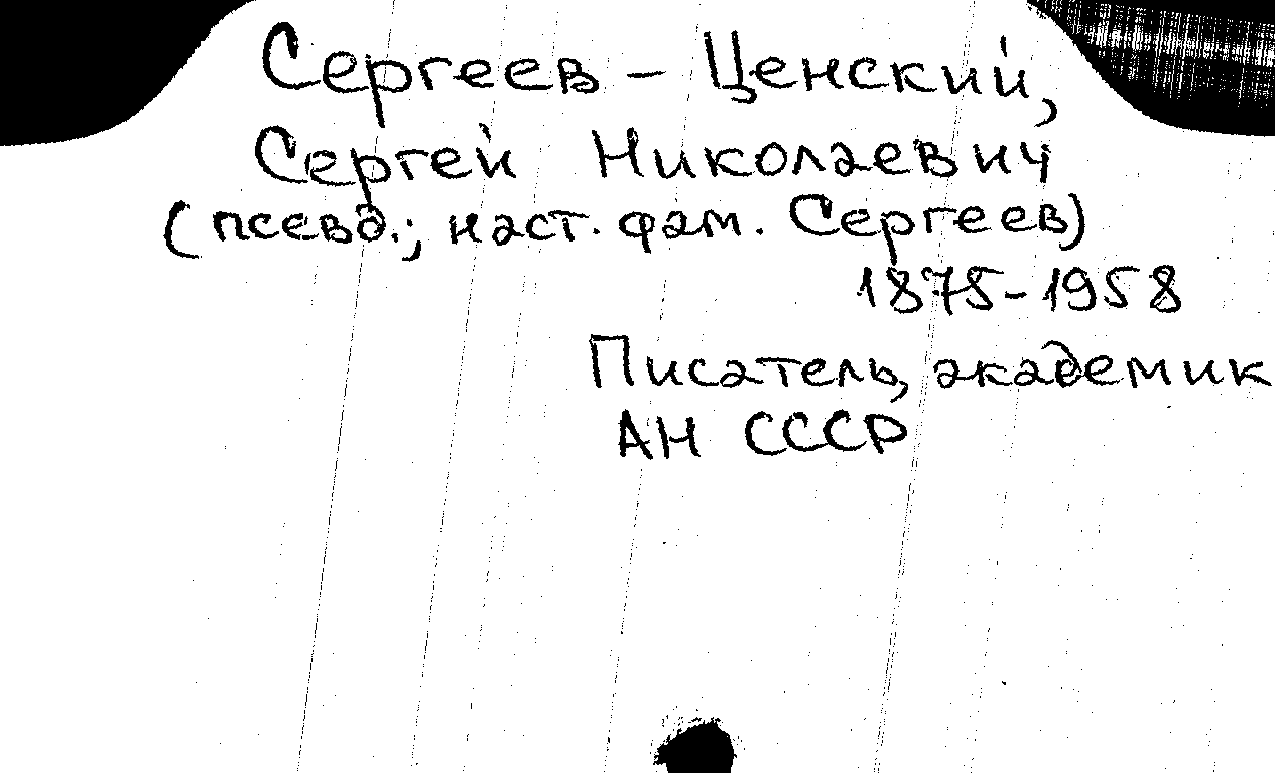 Сергеев - Ценский,
Сергей Николаевич
(псевд.; наст. фам. Сергеев)
1875-1958
Писатель, академик
АН СССР